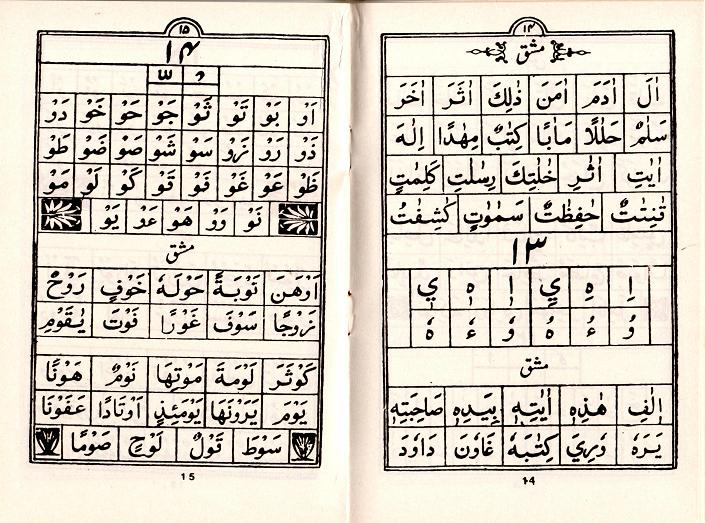 ١٤
مشق
اٰلَ اٰدَمَ اٰمَنَ ذٰلِكَ اَثَرَ اٰخَرَ
سَلٰمٌ حَلٰلًا مَاٰبًا كِتٰبٌ مِهٰدًا اِلٰهَ
اٰيٰتِ اٰثٰرِ خٰلٰتِكَ رِسٰلٰتِ كَلِمٰتٍ
قٰنِتٰتٌ حٰفِظٰتٌ سَمٰوٰتٍ كٰشِفٰتُ
١٣
اِ هِ يِ اٖ هٖ يٖ
وُ ءُ هُ وٗ ءٗ هٗ
مشق
اٖلٰفِ هٰذِهٖ اٰيٰتِهٖ بِيَدِهٖ صَاحِبَتِهٖ
يَرَهٗ وٗرِيَ كِتٰبَهٗ غَاوٗنَ دَاوٗدَ
14
١٥
١٤
اَوْ بَوْ تَوْ ثَوْ جَوْ حَوْ خَوْ دَوْ
ذَوْ رَوْ زَوْ سَوْ شَوْ صَوْ ضَوْ طَوْ
ظَوْ عَوْ غَوْ فَوْ قَوْ كَوْ لَوْ مَوْ
نَوْ وَوْ هَوْ ءَوْ يَوْ
مشق
اَوْهَنَ تَوْبَةً حَوْلَهٗ خَوْفٍ رَوْحٌ
زَوْجًا سَوْفَ غَوْرًا فَوْتَ يٰقَوْمِ
كَوْثَرَ لَوْمَةَ مَوْتِهَا نَوْمٌ هَوْنًا
يَوْمَ يَرَوْنَهَا يَوْمَئِذٍ اَوْتَادًا عَفَوْنَا
سَوْطَ قَوْلٌ لَوْحٍ صَوْمًا
15